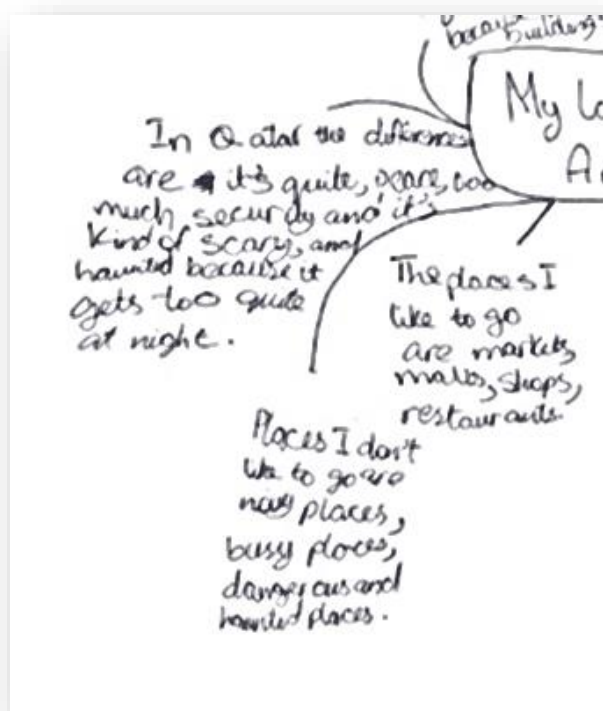 because
building
My Lo
A
In Qatar the differences
are it's quite, peace, too
much security and it's
kind of scary, and
haunted because it
gets too quite
at night.
The places I
like to go
are markets,
malls, shops,
restaurants.
Places I don't
like to go are
noisy places,
busy places,
dangerous and
haunted places.